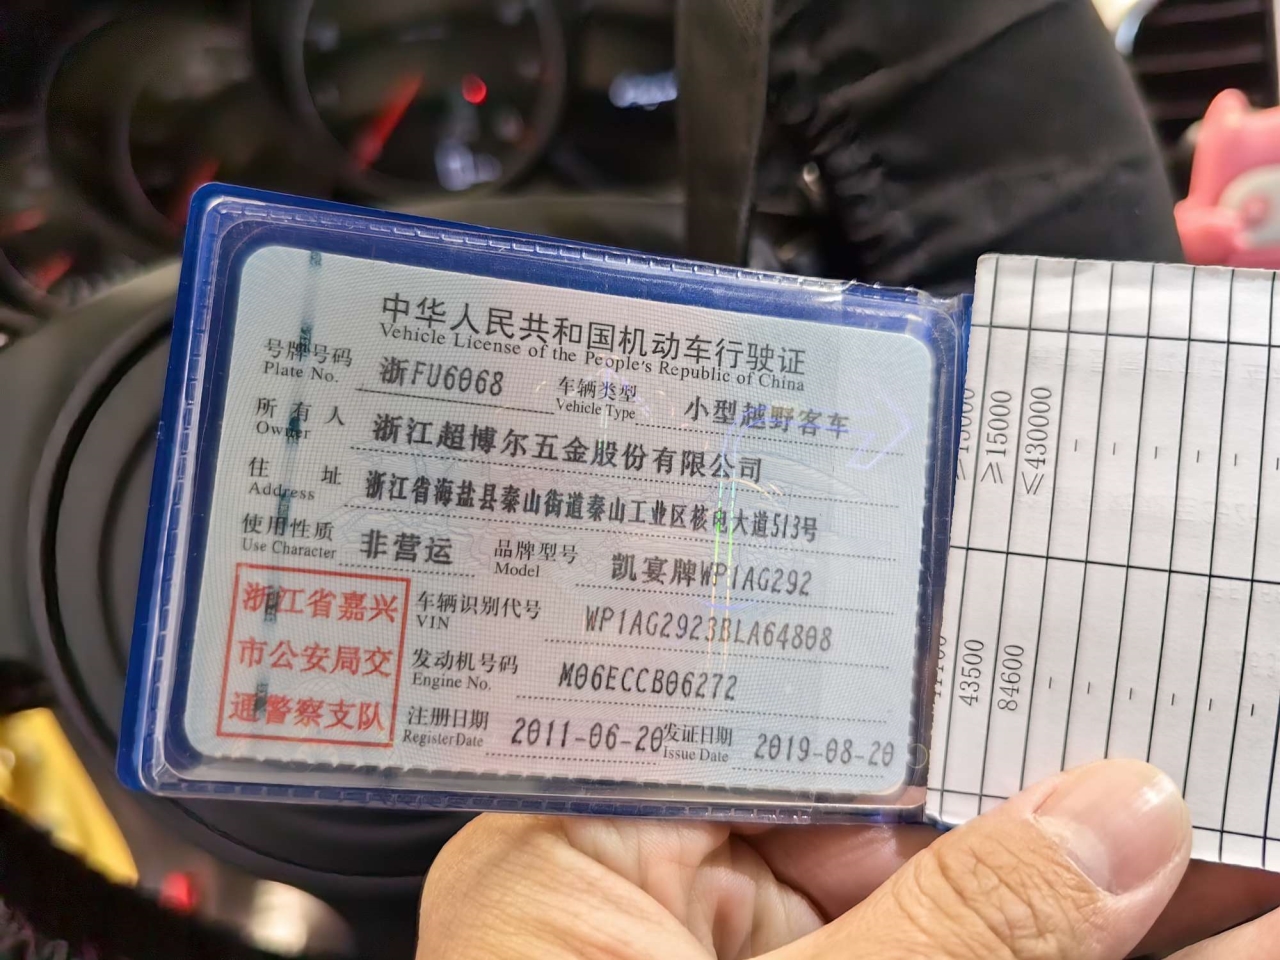 中华人民共和国机动车行驶证
Vehicle License of the People's Republic of China
号牌号码 浙FU6068 车辆类型 小型越野客车
Plate No. Vehicle Type
所有人 浙江超博尔五金股份有限公司
Owner
住址 浙江省海盐县秦山街道秦山工业区核电大道513号
Address
使用性质 非营运 品牌型号 凯宴牌WP1AG292
Use Character Model
浙江省嘉兴
市公安局交
通警察支队
车辆识别代号 WP1AG2923BLA64808
VIN
发动机号码 M06ECCB06272
Engine No.
注册日期 2011-06-20 发证日期 2019-08-20
Register Date Issue Date
≥15000
≤430000
43500
84600